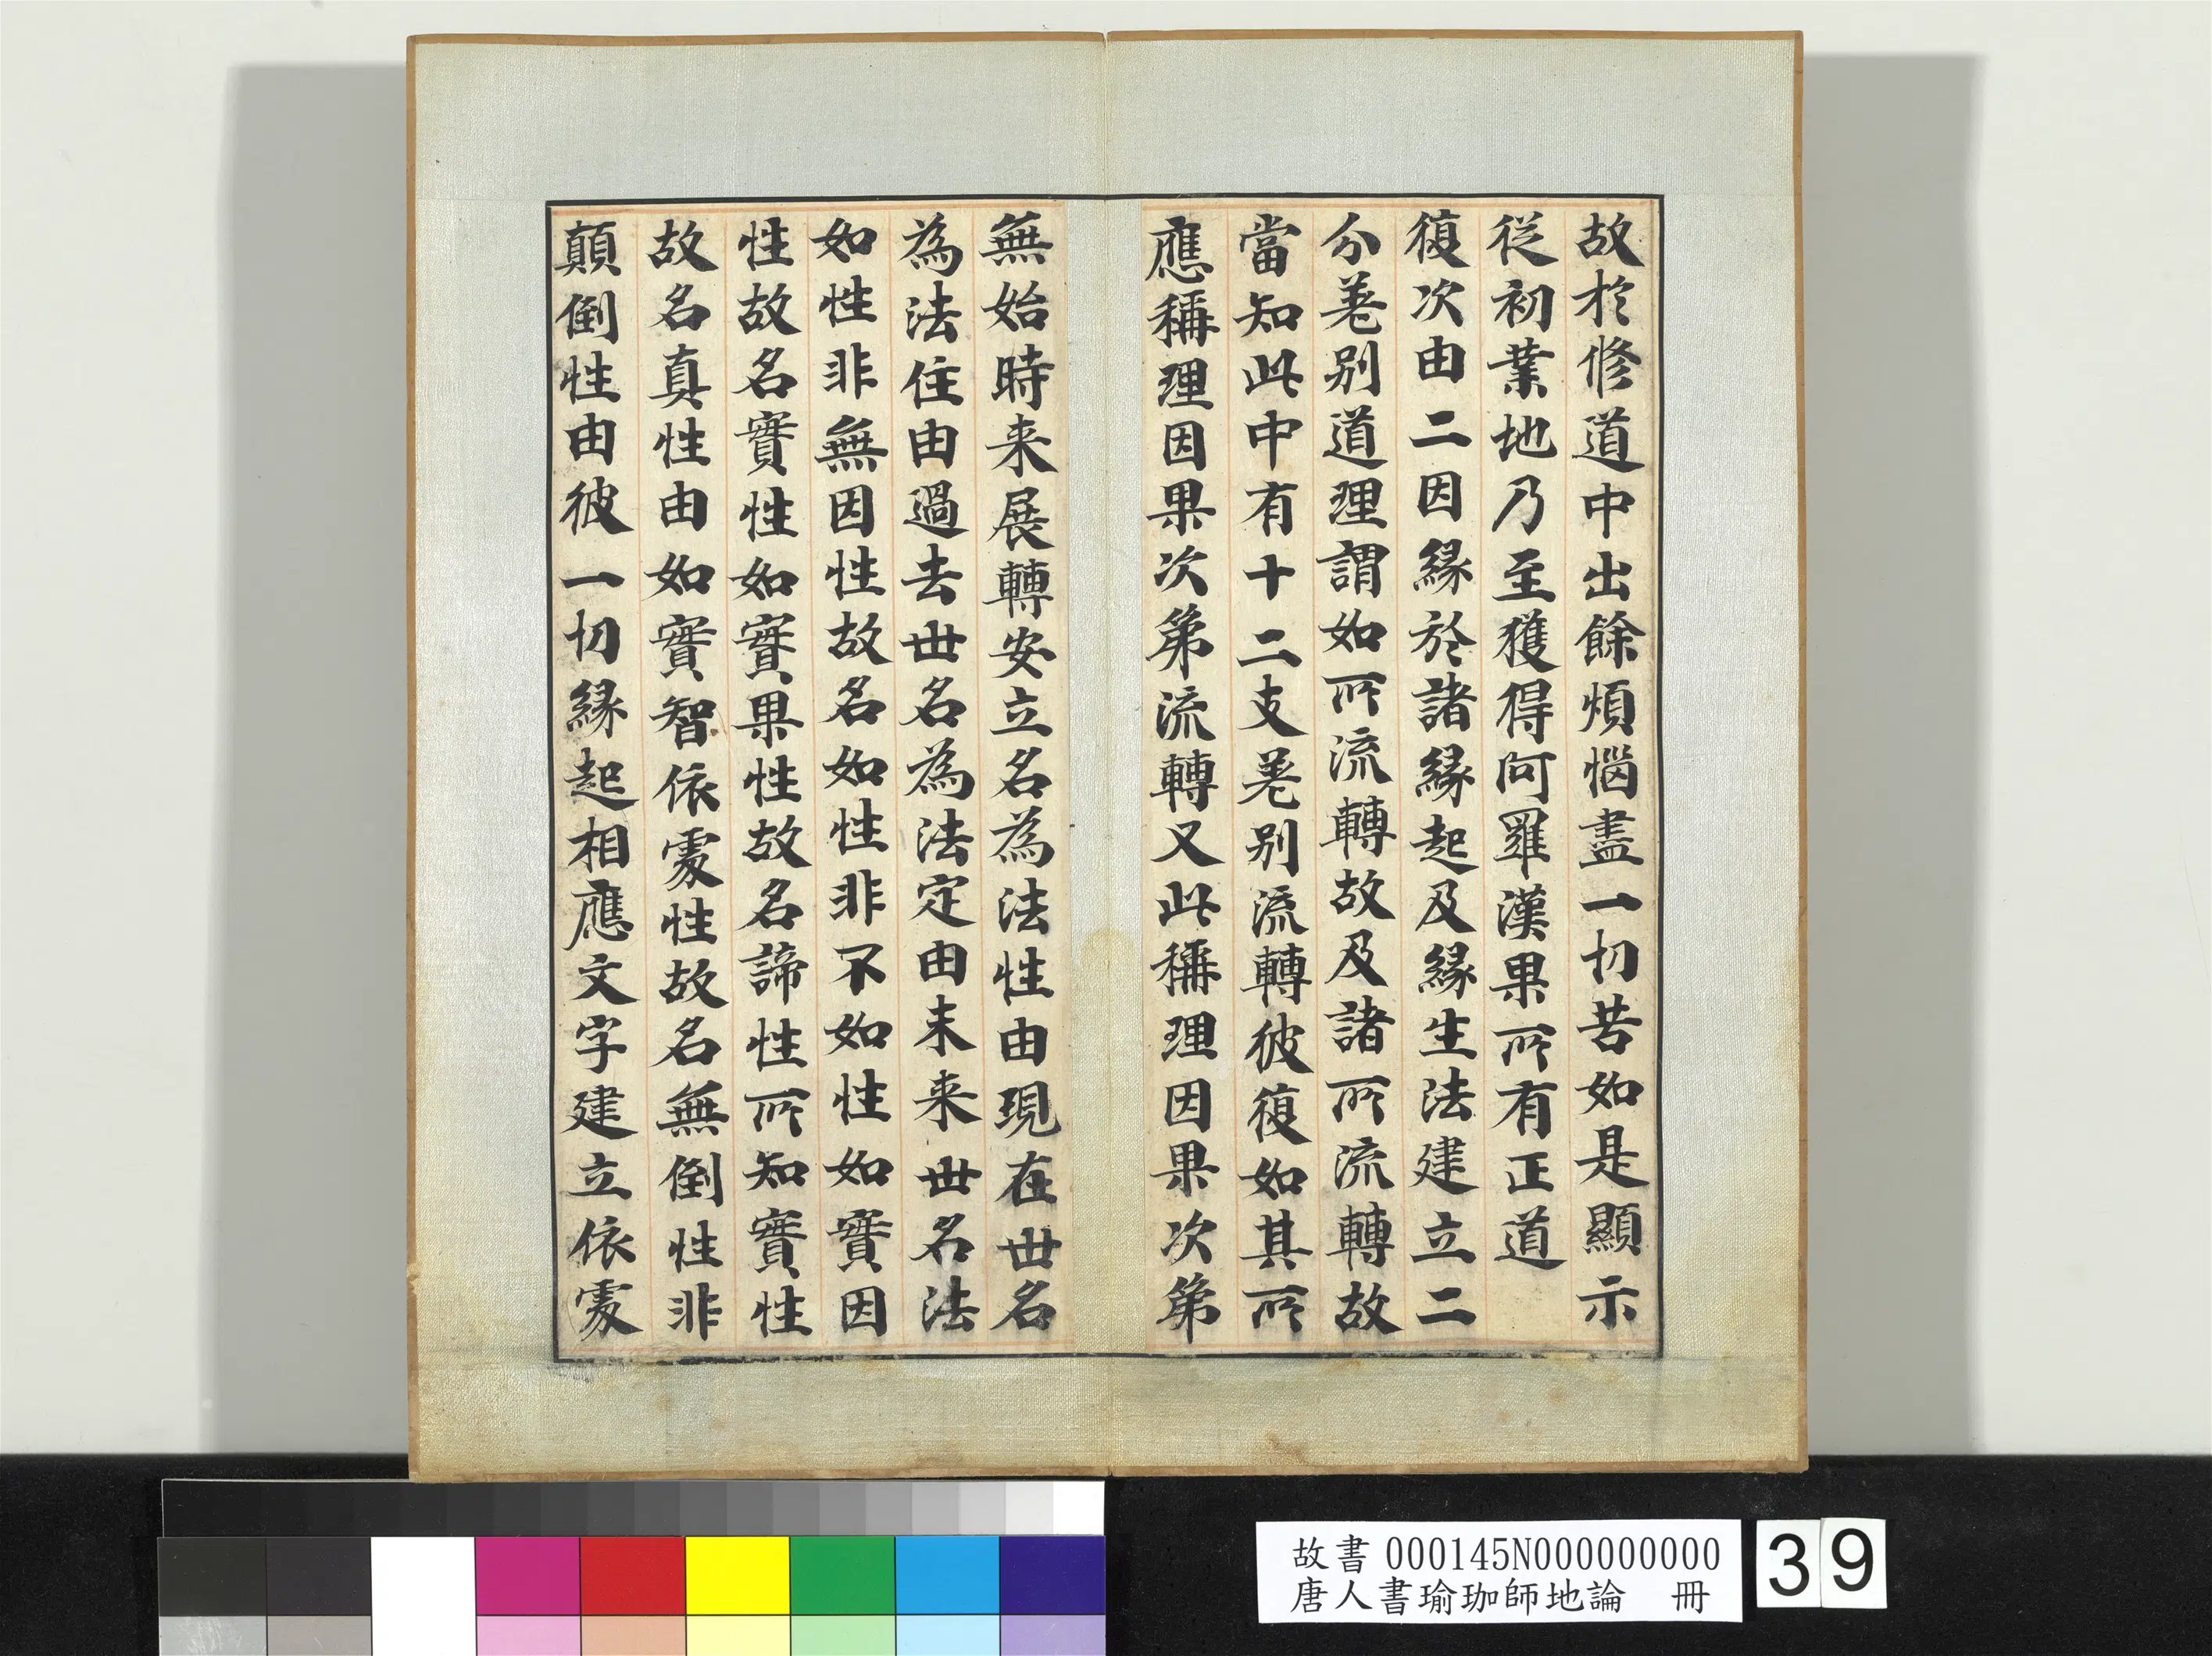 故於修道中出餘煩惱盡一切苦如是顯示
從初業地乃至獲得阿羅漢果所有正道
復次由二因緣於諸緣起及緣生法建立二
分差別道理謂如所流轉故及諸所流轉故
當知此中有十二支差別流轉彼復如其所
應稱理因果次第流轉又此稱理因果次第
無始時来展轉安立名為法性由現在世名
為法住由過去世名為法定由未来世名法
如性非無因性故名如性非不如性如實因
性故名實性如實果性故名諦性所知實性
故名真性由如實智依處性故名無倒性非
顛倒性由彼一切緣起相應文字建立依處
故書 000145N000000000
唐人書瑜珈師地論 冊
39